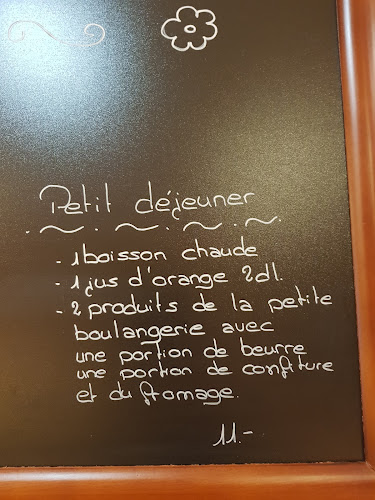 Petit déjeuner
- 1 boisson chaude
- 1 jus d'orange 2dl.
- 2 produits de la petite
boulangerie avec
une portion de beurre
une portion de confiture
et du fromage.
11.-